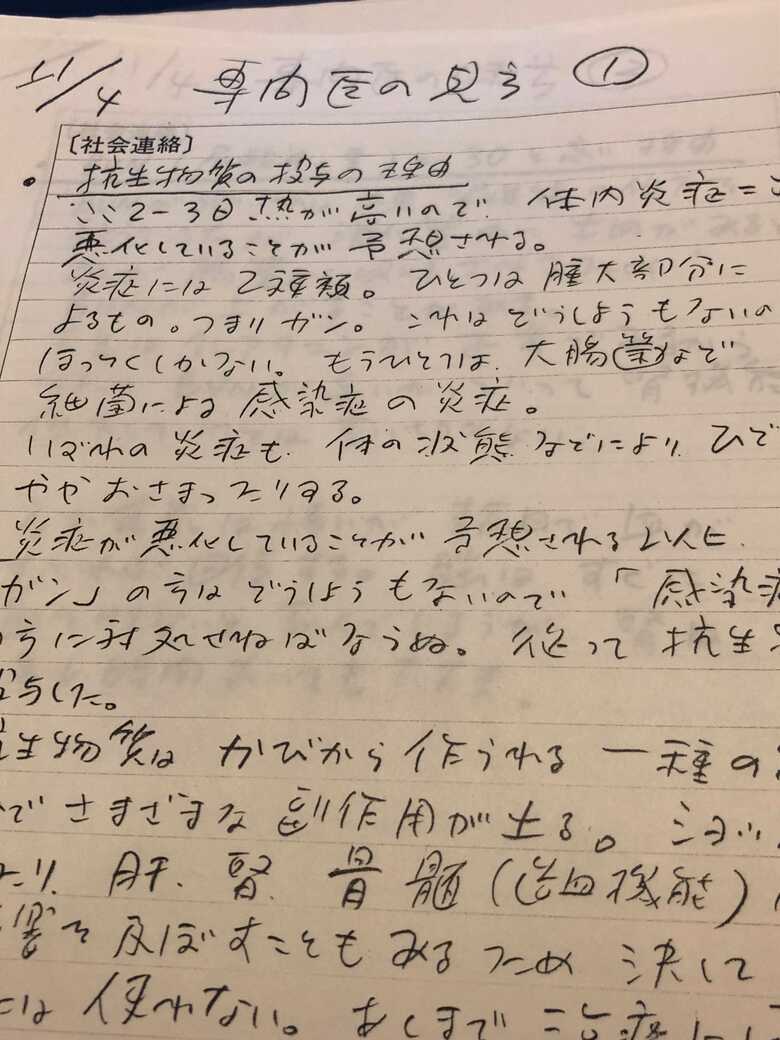 11/4 専門医の見方 ①
〔社会連絡〕
・抗生物質の投与の理由
ここ2-3日熱が高いので 体内炎症=
悪化していることが予想される。
炎症には2種類。ひとつは 腫大部分に
よるもの。つまりガン。これはどうしようもないの
ほっとくしかない。もうひとつは、大腸菌など
細菌による感染症の炎症。
いずれの炎症も、体の状態などにより、ひど
やや おさまったりする。
炎症が悪化していることが予想される以上
ガン」の方はどうしようもないので「感染症
方に対処せねばならぬ。従って抗生
与した。
生物質は かびから作られる一種の
でさまざまな副作用が出る。ショッ
たり、肝、腎、骨髄(造血機能)
響を及ぼすこともあるため 決して
には使わない。あくまで治療に